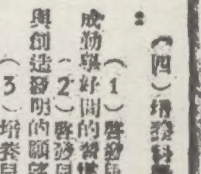 （四）培養科
：
（1）啓發
成勤學好問的習慣
（2）啓發兒
與創造發明的願望
（3）培養兒